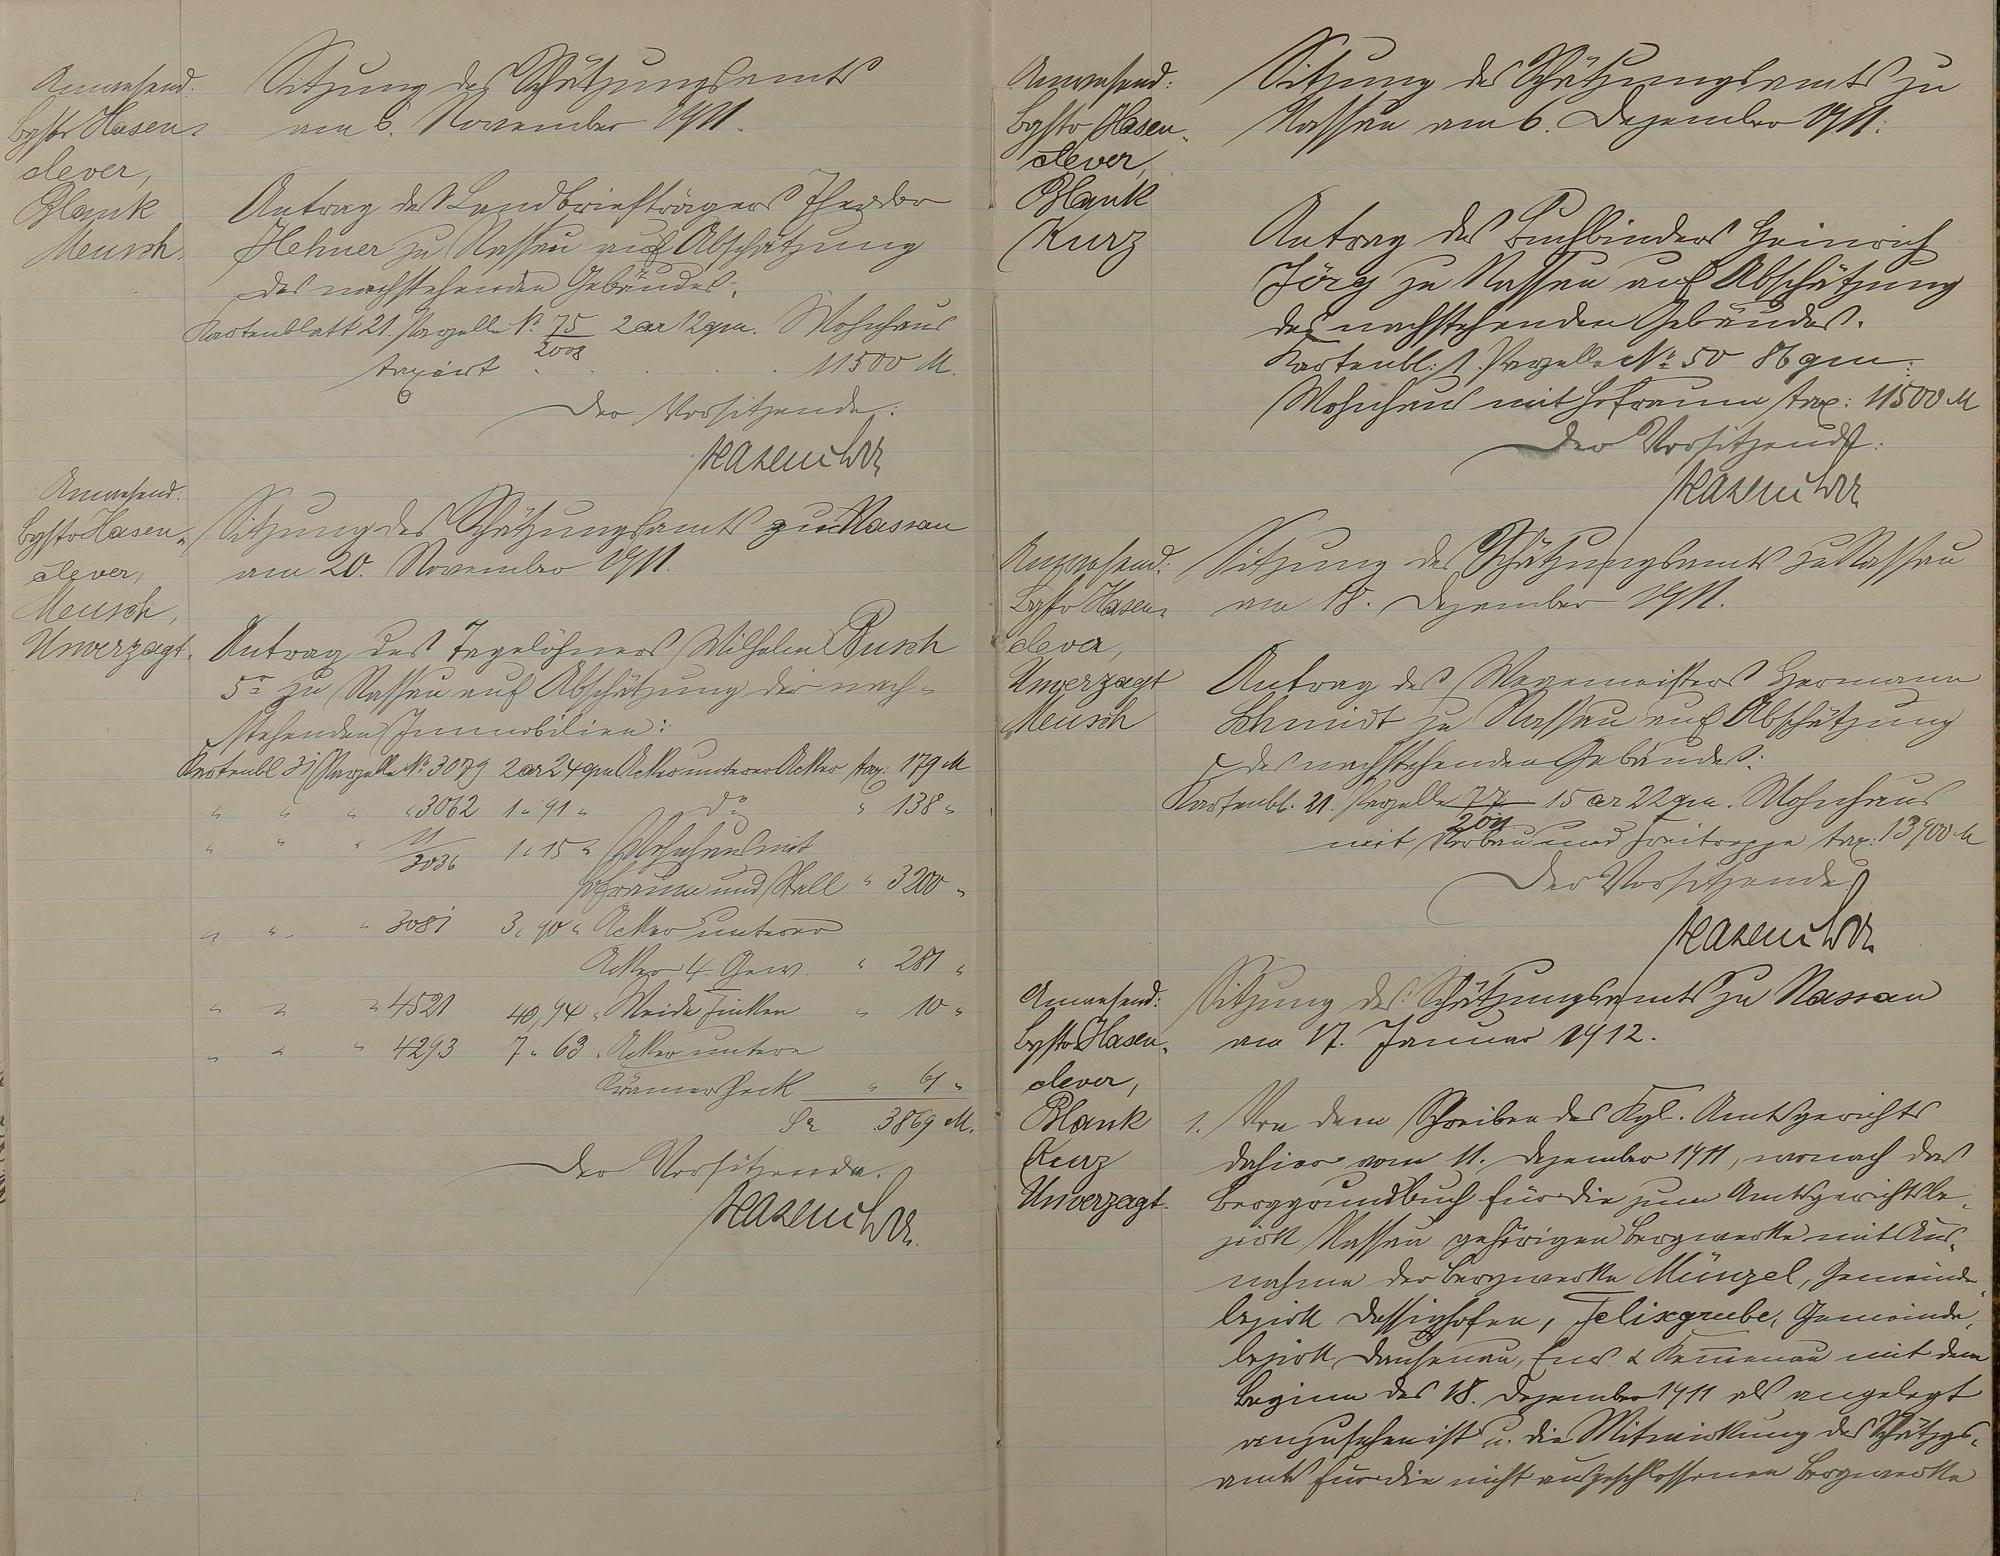 Anwesend:
Bgstr Hasen-
clever,
Blank
Meusch.
Sitzung des Schätzungsamts
am 6. November 1911.
Antrag des Landbriefträgers Theodor
Hehner zu Nassau auf Abschätzung
des nachstehenden Gebäudes:
Kartenblatt 21. Parzelle № 75/2008 2 ar 12 qm. Wohnhaus
taxiert . . . . 11500 M.
Der Vorsitzende:
Hasenclever
Anwesend:
Bgstr Hasen-
clever,
Meusch,
Unverzagt.
Sitzung des Schätzungsamts zu Nassau
am 20. November 1911.
Antrag des Tagelöhners Wilhelm Busch
5r zu Nassau auf Abschätzung der nach-
stehenden Immobilien:
Kartenbl 31 Parzelle № 3079 2 ar 24 qm Acker unterer Acker tax: 179 M
" " " " 3062 1 " 91 " do " 138 "
" " " 11/3036 1 " 15 " Wohnhaus mit
Hofraum und Stall " 3200 "
" " " 3081 3 " 90 " Acker unterer
Acker 4. Gew. " 281 "
" " " 4521 40,94 " Weide Finken " 10 "
" " " 4293 7 " 63 " Acker untere
Krämersheck " 61 "
Sa 3869 M.
Der Vorsitzende.
Hasenclever
Anwesend:
Bgstr Hasen-
clever,
Blank
Kurz
Sitzung des Schätzungsamts zu
Nassau am 6. Dezember 1911.
Antrag des Buchbinders Heinrich
Jörg zu Nassau auf Abschätzung
des nachstehenden Gebäudes.
Kartenbl: 1. Parzelle № 50 86 qm.
Wohnhaus mit Hofraum tax: 11500 M
Der Vorsitzende:
Hasenclever
Anwesend:
Bgstr Hasen-
clever,
Unverzagt
Meusch
Sitzung des Schätzungsamts zu Nassau
am 18. Dezember 1911.
Antrag des Wegemeisters Hermann
Schmidt zu Nassau auf Abschätzung
des nachstehenden Gebäudes:
Kartenbl. 21. Parzelle 77 15 ar 22 qm. Wohnhaus
mit Vorbau und Freitreppe tax: 13900 M
Der Vorsitzende
Hasenclever
Anwesend:
Bgstr Hasen-
clever,
Blank
Kurz
Unverzagt.
Sitzung des Schätzungsamts zu Nassau
am 17. Januar 1912.
1. Von dem Schreiben des Kgl. Amtsgerichts
dahier vom 11. Dezember 1911, wonach das
Berggrundbuch für die zum Amtsgerichtsbe-
zirk Nassau gehörigen Bergwerke mit Aus-
nahme der Bergwerke Münzel, Gemeinde-
bezirk Dessighofen, Felixgrube, Gemeinde-
bezirk Dausenau, Ems & Kemmenau mit dem
Beginn des 18. Dezember 1911 als angelegt
anzusehen ist u. die Mitwirkung des Schätzgs-
amts für die nicht ausgeschlossenen Bergwerke